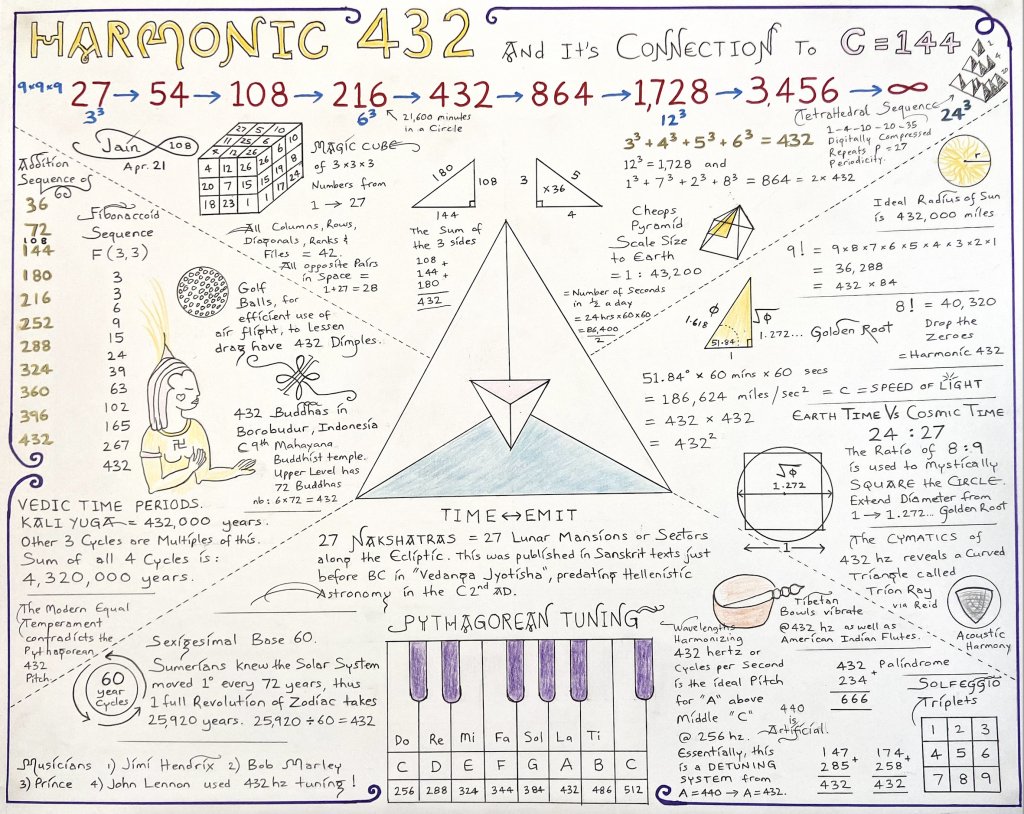 HARMONIC 432 AND IT'S CONNECTION TO C = 144
9x9x9 27 → 54 → 108 → 216 → 432 → 864 → 1,728 → 3,456 → ∞
3³
6³
21,600 minutes
in a Circle
12³
24³
Tetrahedral Sequence
1-4-10-20-35
Digitally Compressed
Repeats P = 27
Periodicity.
1
2
4
20
Jain 108
Apr. 21
27 5 10
11 25 6
x 12 26
4 12 26
20 7 15
18 23 1
MAGIC CUBE
of 3x3x3
Numbers from
1 → 27
All Columns, Rows,
Diagonals, Ranks &
Files = 42.
All opposite Pairs
in Space =
1+27 = 28
180
108
144
The Sum of
the 3 sides
108 +
144 +
180
432
3
5
x36
4
3³ + 4³ + 5³ + 6³ = 432
12³ = 1,728 and
1³ + 7³ + 2³ + 8³ = 864 = 2 x 432
r
Ideal Radius of Sun
is 432,000 miles
Addition
Sequence of
60
36
72
108
144
180
216
252
288
324
360
396
432
Fibonaccoid
Sequence
F (3,3)
3
3
6
9
15
24
39
63
102
165
267
432
Golf
Balls, for
efficient use of
air flight, to lessen
drag have 432 Dimples.
432 Buddhas in
Borobudur, Indonesia
C 9th Mahayana
Buddhist temple.
Upper Level has
72 Buddhas
nb: 6x72 = 432
Cheops
Pyramid
Scale Size
to Earth
= 1 : 43,200
= Number of Seconds
in ½ a day
= 24hrs x 60 x 60
= 86,400
2
9! = 9x8x7x6x5x4x3x2x1
= 36,288
= 432 x 84
8! = 40,320
Drop the
Zeroes
= Harmonic 432
Φ
1.618
√Φ
1.272...
51.84°
1
Golden Root
51.84° x 60 mins x 60 secs
= 186,624 miles/sec² = C = SPEED OF LIGHT
= 432 x 432
= 432²
EARTH TIME Vs COSMIC TIME
24 : 27
The Ratio of 8:9
is used to Mystically
SQUARE the CIRCLE.
Extend Diameter from
1 → 1.272... Golden Root
√Φ
1.272
1
VEDIC TIME PERIODS.
KALI YUGA = 432,000 years.
Other 3 Cycles are Multiples of this.
Sum of all 4 Cycles is:
4,320,000 years.
TIME ↔ EMIT
27 NAKSHATRAS = 27 Lunar Mansions or Sectors
along the Ecliptic. This was published in Sanskrit texts just
before BC in "Vedanga Jyotisha", predating Hellenistic
Astronomy in the C 2nd AD.
The CYMATICS of
432 hz reveals a Curved
Triangle called
Trion Ray
via Reid
Acoustic
Harmony
Tibetan
Bowls vibrate
@ 432 hz as well as
American Indian Flutes.
The Modern Equal
Temperament
contradicts the
Pythagorean
432
Pitch
60
year
Cycles
Sexigesimal Base 60.
Sumerians knew the Solar System
moved 1° every 72 years, thus
1 full Revolution of Zodiac takes
25,920 years. 25,920 ÷ 60 = 432
Musicians 1) Jimi Hendrix 2) Bob Marley
3) Prince 4) John Lennon used 432 hz tuning!
PYTHAGOREAN TUNING
Do Re Mi Fa Sol La Ti
C D E F G A B C
256 288 324 344 384 432 486 512
Wavelengths
Harmonizing
432 hertz or
Cycles per Second
is the ideal Pitch
for "A" above
Middle "C"
@ 256 hz.
440
is
Artificial.
Essentially, this
is a DETUNING
SYSTEM from
A = 440 → A = 432.
432 Palindrome
234 +
666
147
285 +
432
174
258 +
432
SOLFEGGIO
Triplets
1 2 3
4 5 6
7 8 9